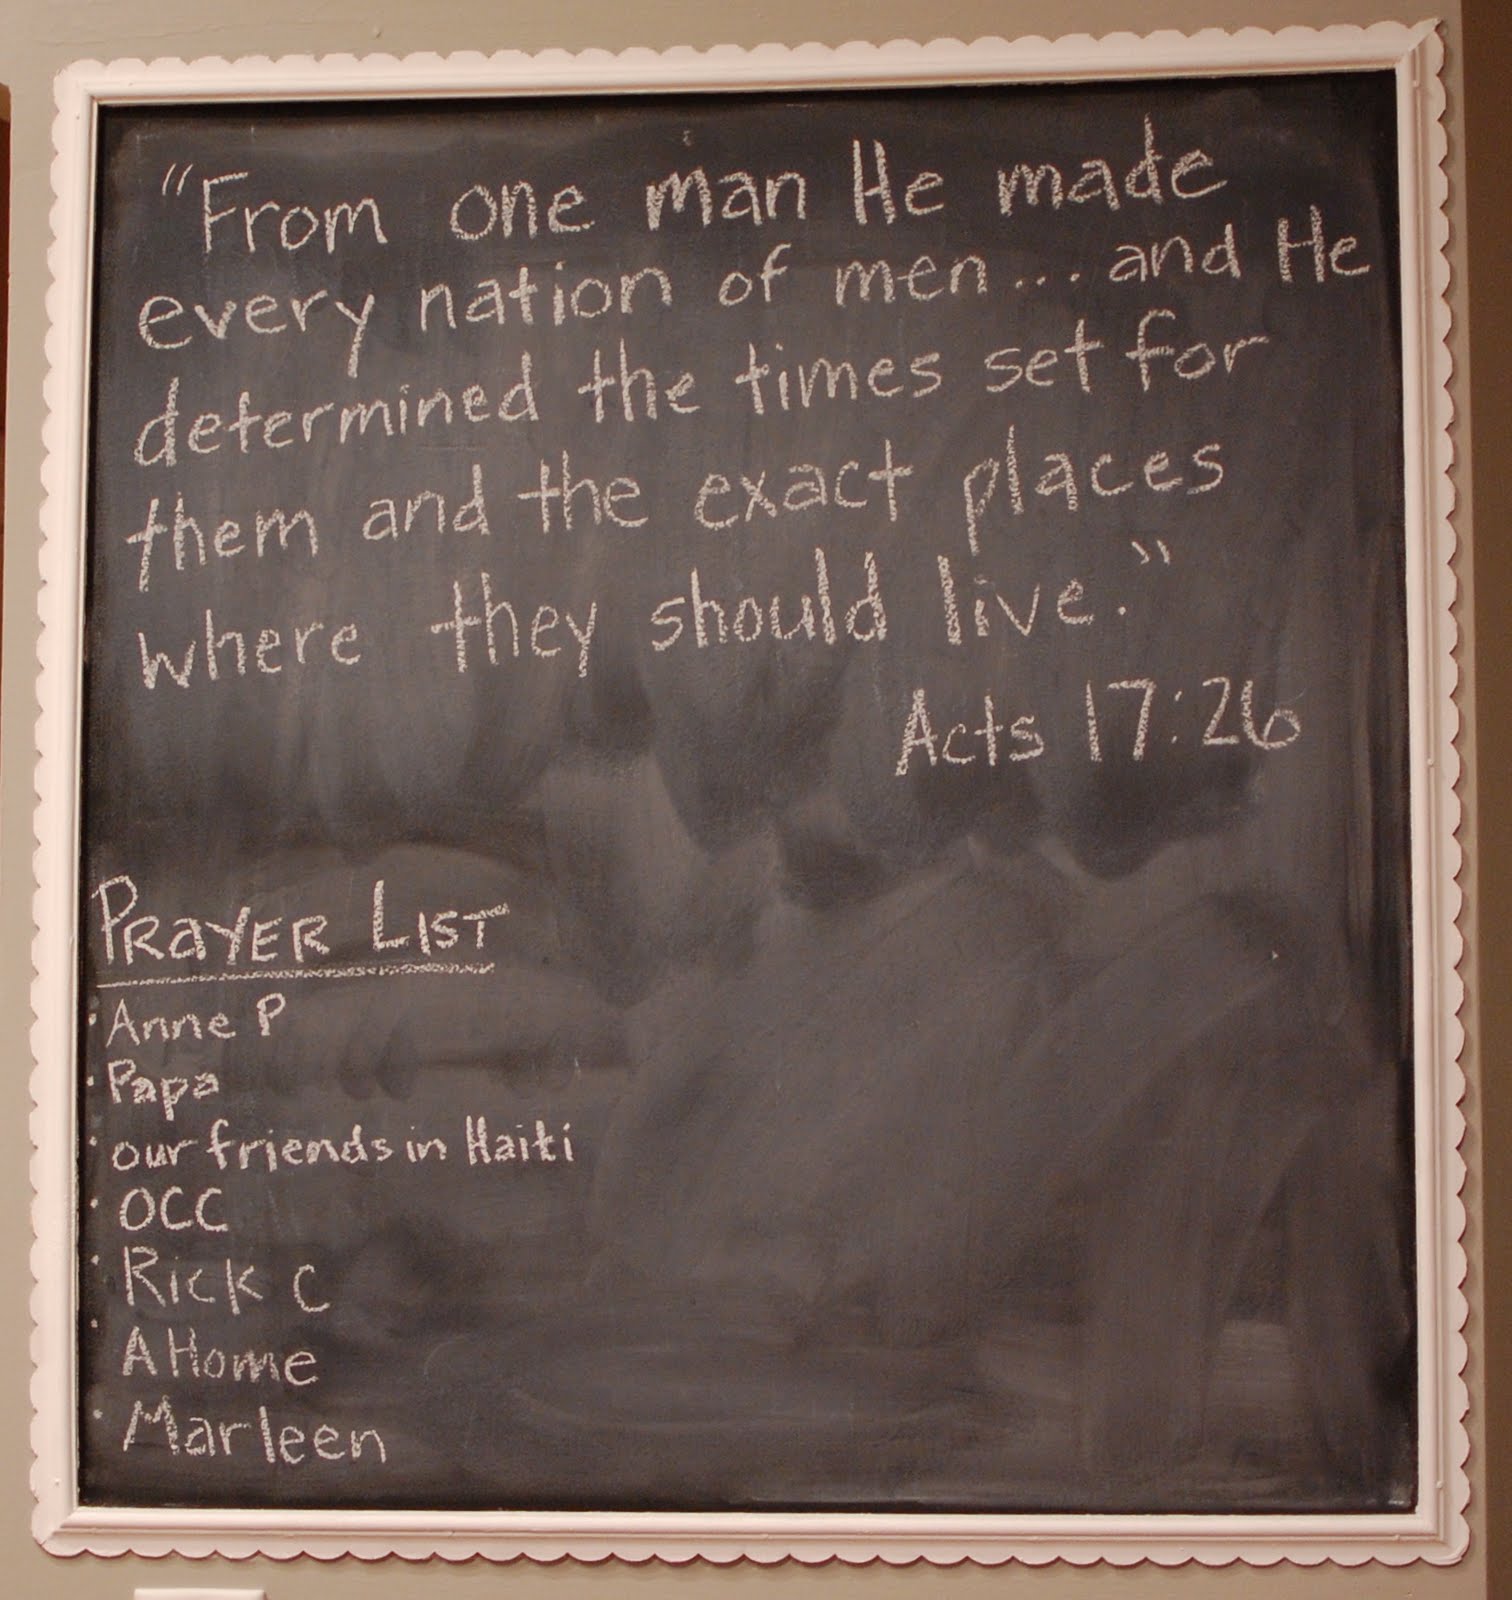 "From one man He made
every nation of men... and He
determined the times set for
them and the exact places
where they should live."
Acts 17:26
PRAYER LIST
· Anne P
· Papa
· our friends in Haiti
· OCC
· Rick C
· A Home
· Marleen